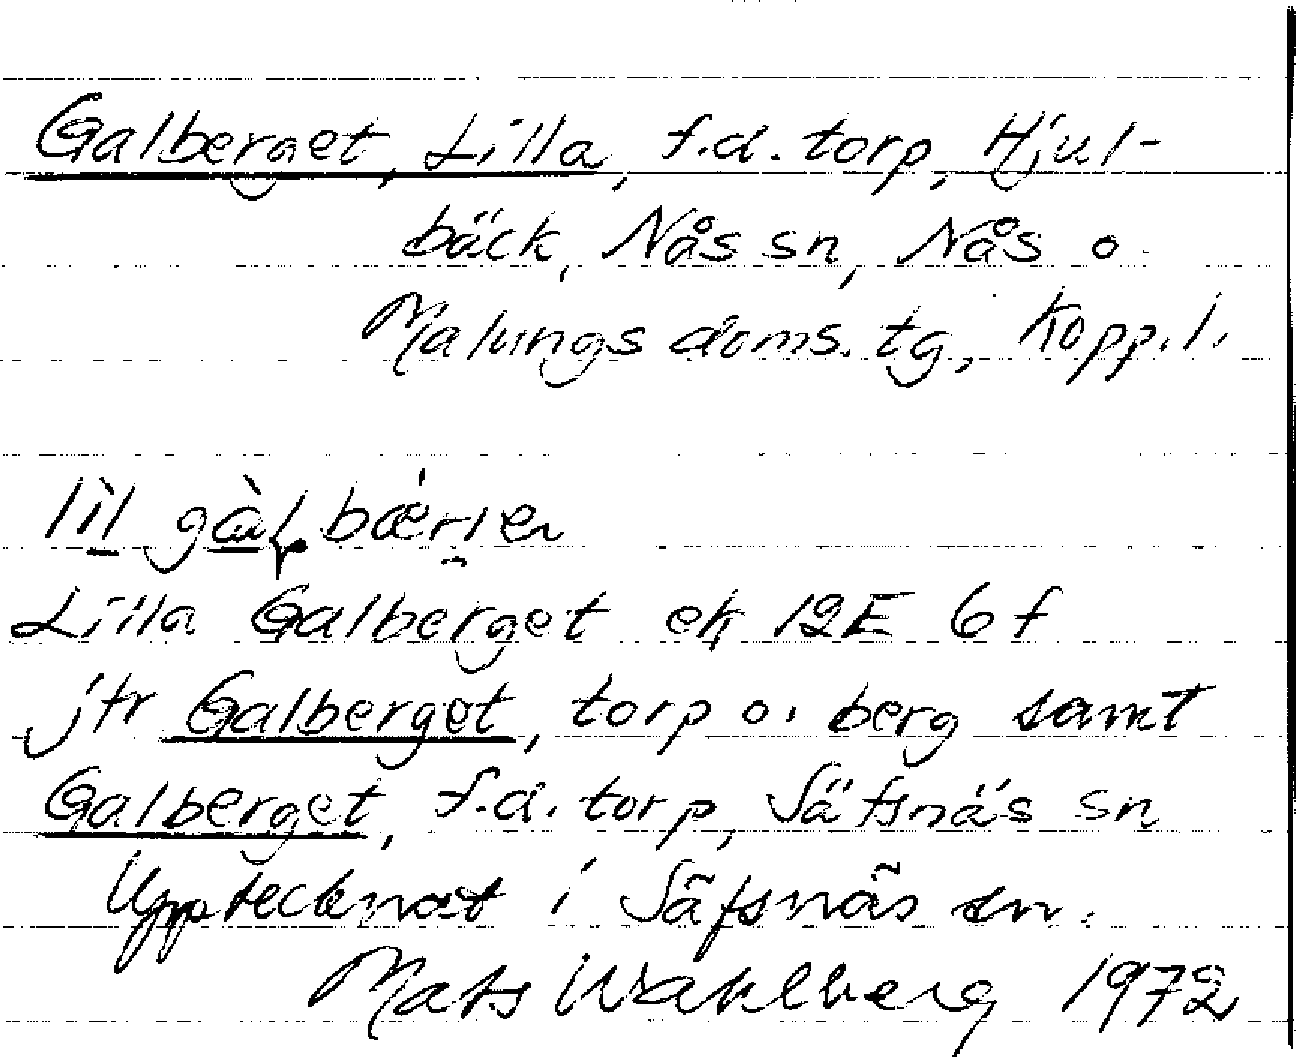 Galberget, Lilla, f.d. torp, Hjul-
bäck, Nås sn, Nås o.
Malungs doms. tg, Kopp.l.
lìl gàɽbæ̀rjen
Lilla Galberget ek 12E 6f
jfr Galberget, torp o. berg samt
Galberget, f.d. torp, Säfsnäs sn
Upptecknat i Säfsnäs sn.
Mats Wahlberg 1972